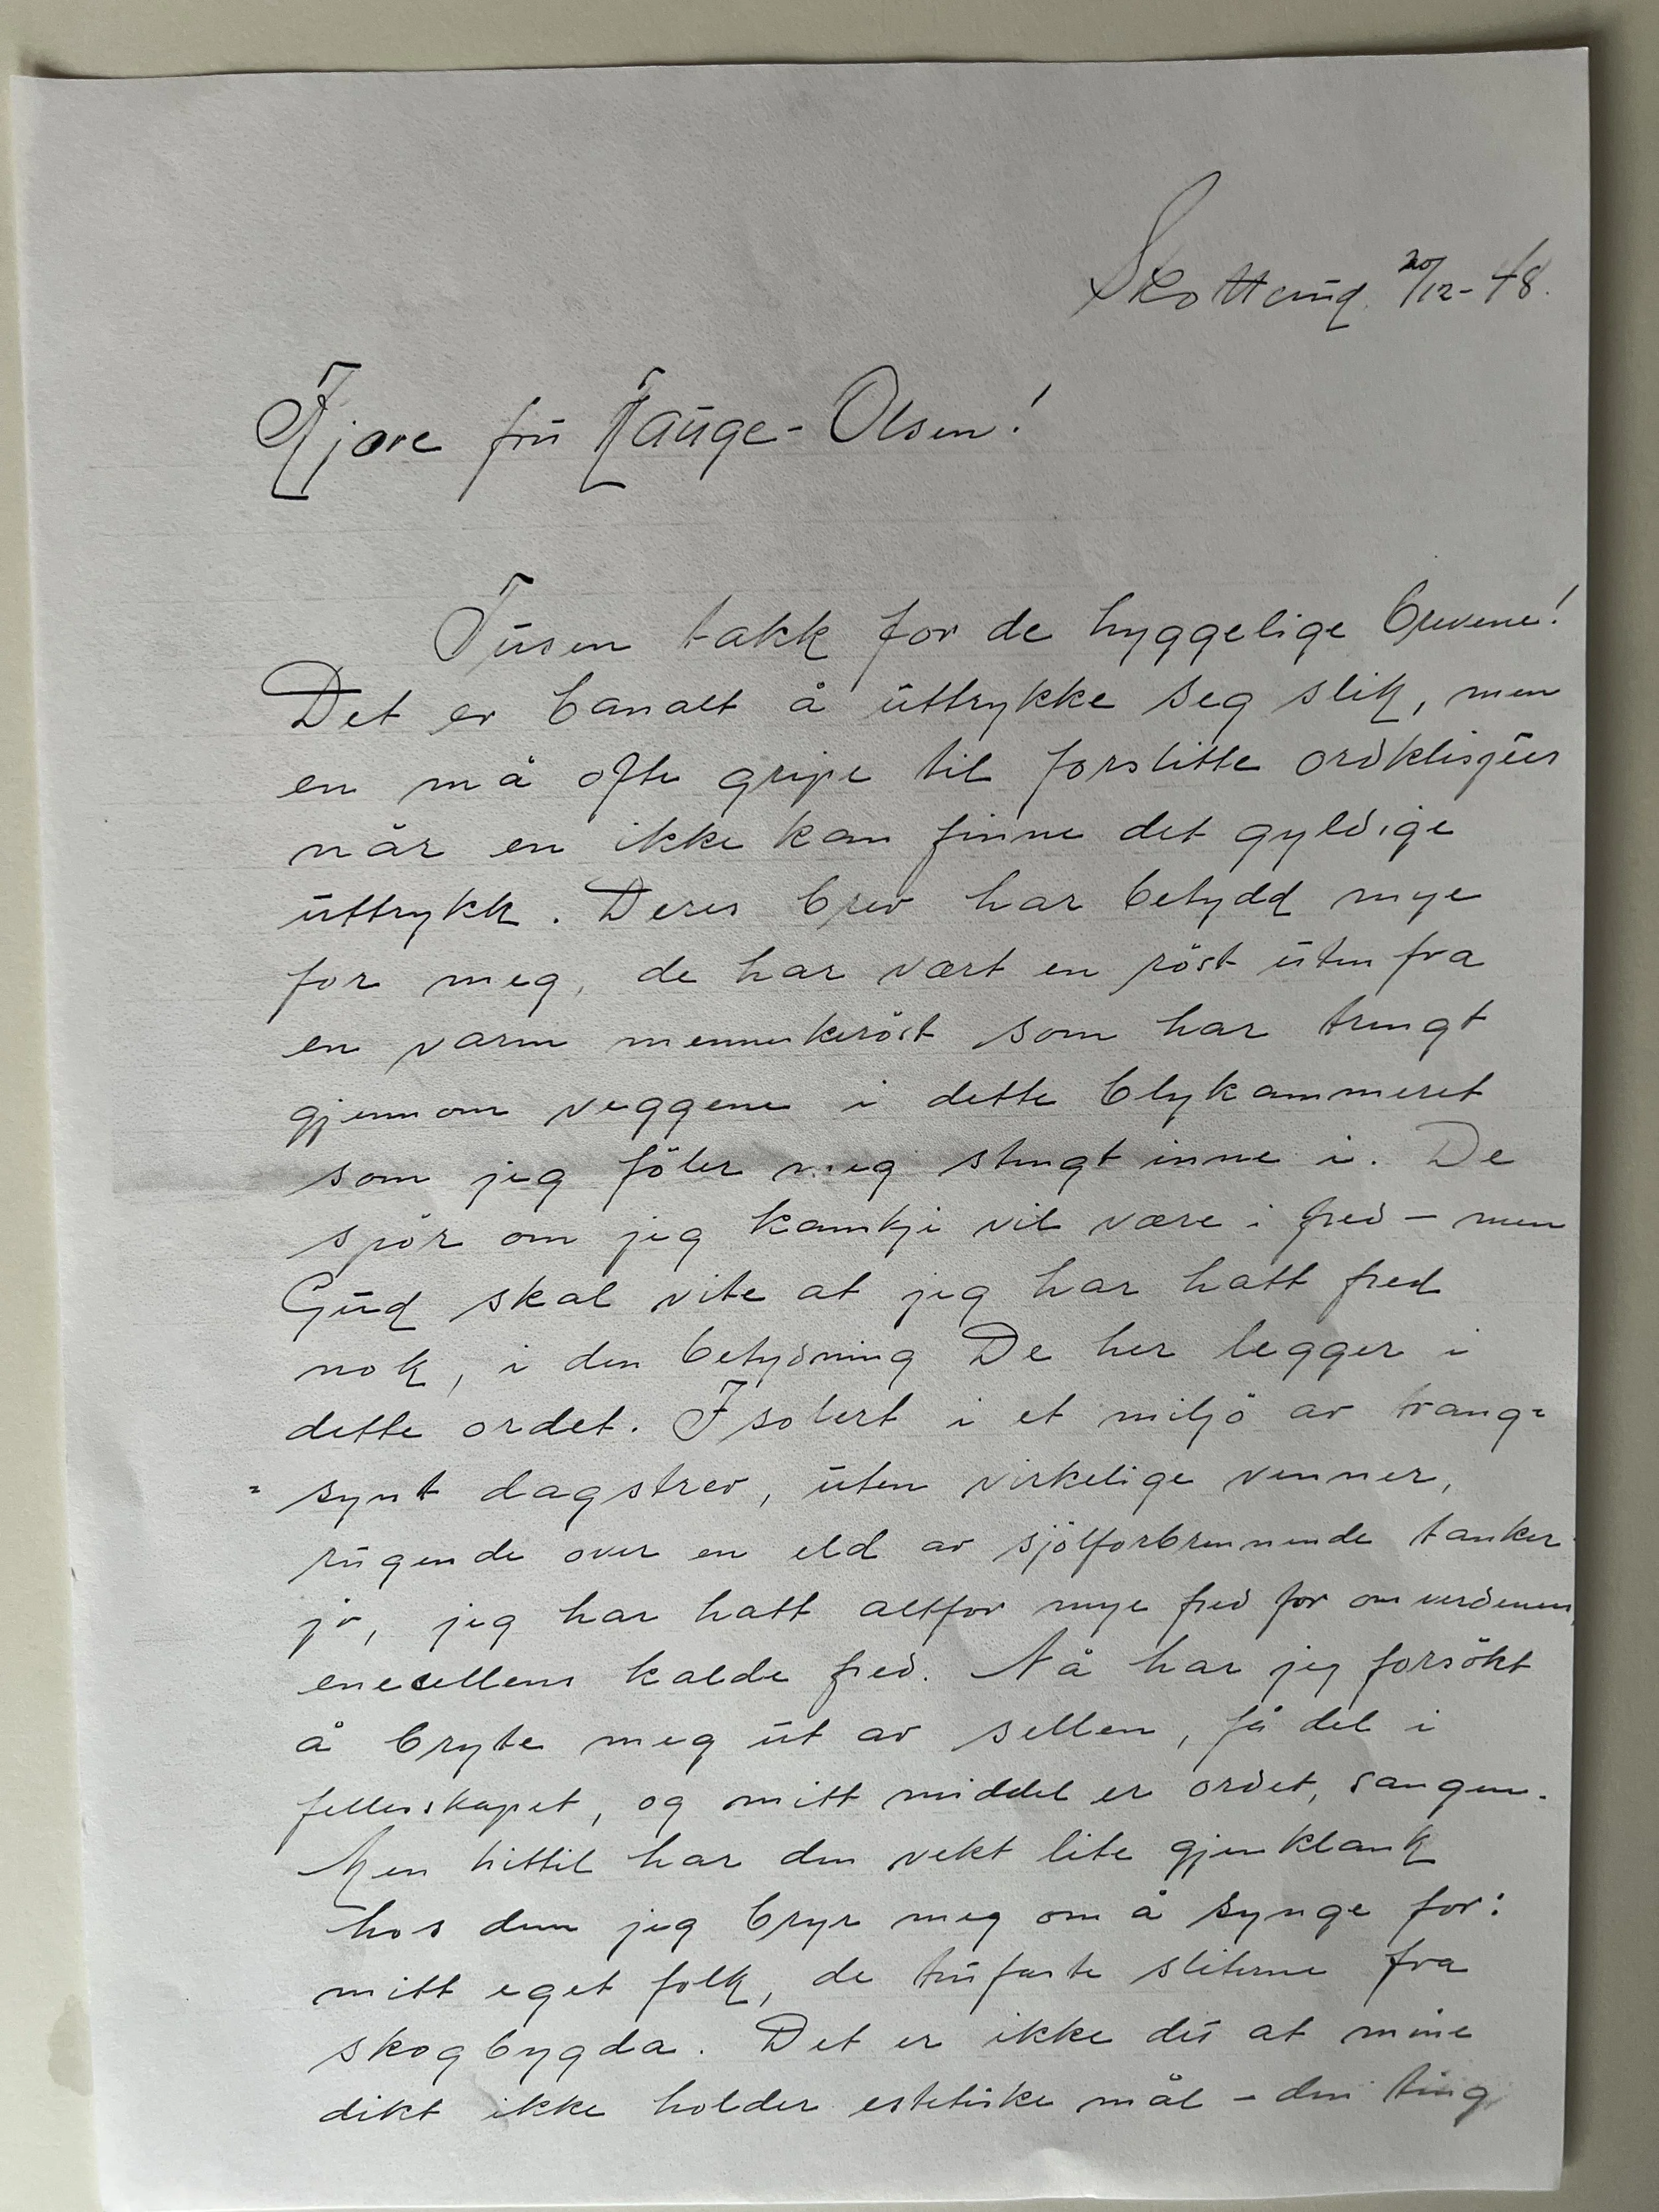 Skotterud 20/12-48.
Kjære fru Hauge-Olsen!
Tusen takk for de hyggelige brevene!
Det er banalt å uttrykke seg slik, men
en må ofte gripe til forslitte ordklisjeer
når en ikke kan finne det gyldige
uttrykk. Deres brev har betydd mye
for meg, de har vært en röst utenfra
en varm menneskeröst som har trengt
gjennom veggene i dette blykammeret
som jeg föler meg stengt inne i. De
spör om jeg kanskje vil være i fred – men
Gud skal vite at jeg har hatt fred
nok, i den betydning De her legger i
dette ordet. Isolert i et miljö av trang=
= synt dagstrev, uten virkelige venner,
rugende over en eld av sjölforbrennende tanker
jo, jeg har hatt altfor mye fred for omverdenen,
enecellens kalde fred. Nå har jeg forsökt
å bryte meg ut av sellen, få del i
fellesskapet, og mitt middel er ordet, sangen.
Men hittil har den vekt lite gjenklank
hos dem jeg bryr meg om å synge for:
mitt eget folk, de trufaste sliterne fra
skogbygda. Det er ikke det at mine
dikt ikke holder estetiske mål – den ting